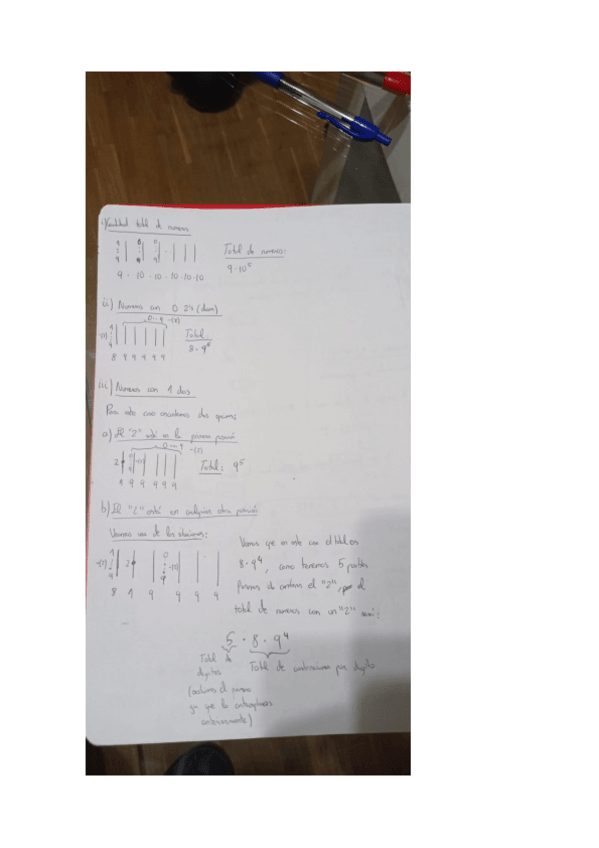 i) Cantidad total de numeros
1 0 0
9 9 9
Total de numeros:
9 · 10 · 10 · 10 · 10 · 10
9 · 10⁵
ii) Numeros con 0 2's (doses)
0...9 -(2)
1
-(2)
9
Total:
8 9 9 9 9 9
8 · 9⁵
iii) Numeros con 1 dos
Para este caso
dos
a) El "2" está en la primera posición
0...9 -(2)
2
Total: 9⁵
1 9 9 9 9 9
b) El "2" está en cualquier otra posición
Veamos una de las
1 2 0
-(2) -(2)
9 9
8 1 9 9 9 9
Vemos que en este caso el total es
8 · 9⁴, como tenemos 5 posibles
formas de ordenar el "2", el
total de numeros con un "2" será:
5 · 8 · 9⁴
Total de
digitos
Total de por digito
ya que lo
anteriormente)